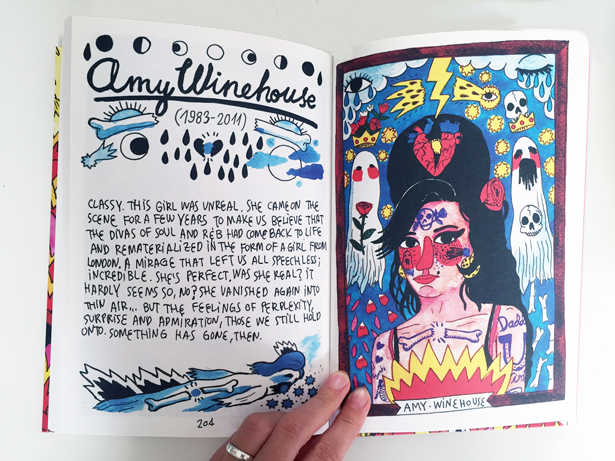 Amy Winehouse
(1983-2011)
CLASSY. THIS GIRL WAS UNREAL. SHE CAME ON THE
SCENE FOR A FEW YEARS TO MAKE US BELIEVE THAT
THE DIVAS OF SOUL AND R&B HAD COME BACK TO LIFE
AND REMATERIALIZED IN THE FORM OF A GIRL FROM
LONDON. A MIRAGE THAT LEFT US ALL SPEECHLESS;
INCREDIBLE. SHE'S PERFECT, WAS SHE REAL? IT
HARDLY SEEMS SO, NO? SHE VANISHED AGAIN INTO
THIN AIR... BUT THE FEELINGS OF PERPLEXITY,
SURPRISE AND ADMIRATION, THOSE WE STILL HOLD
ONTO. SOMETHING HAS GONE, THEN.
204
Dada
AMY · WINEHOUSE